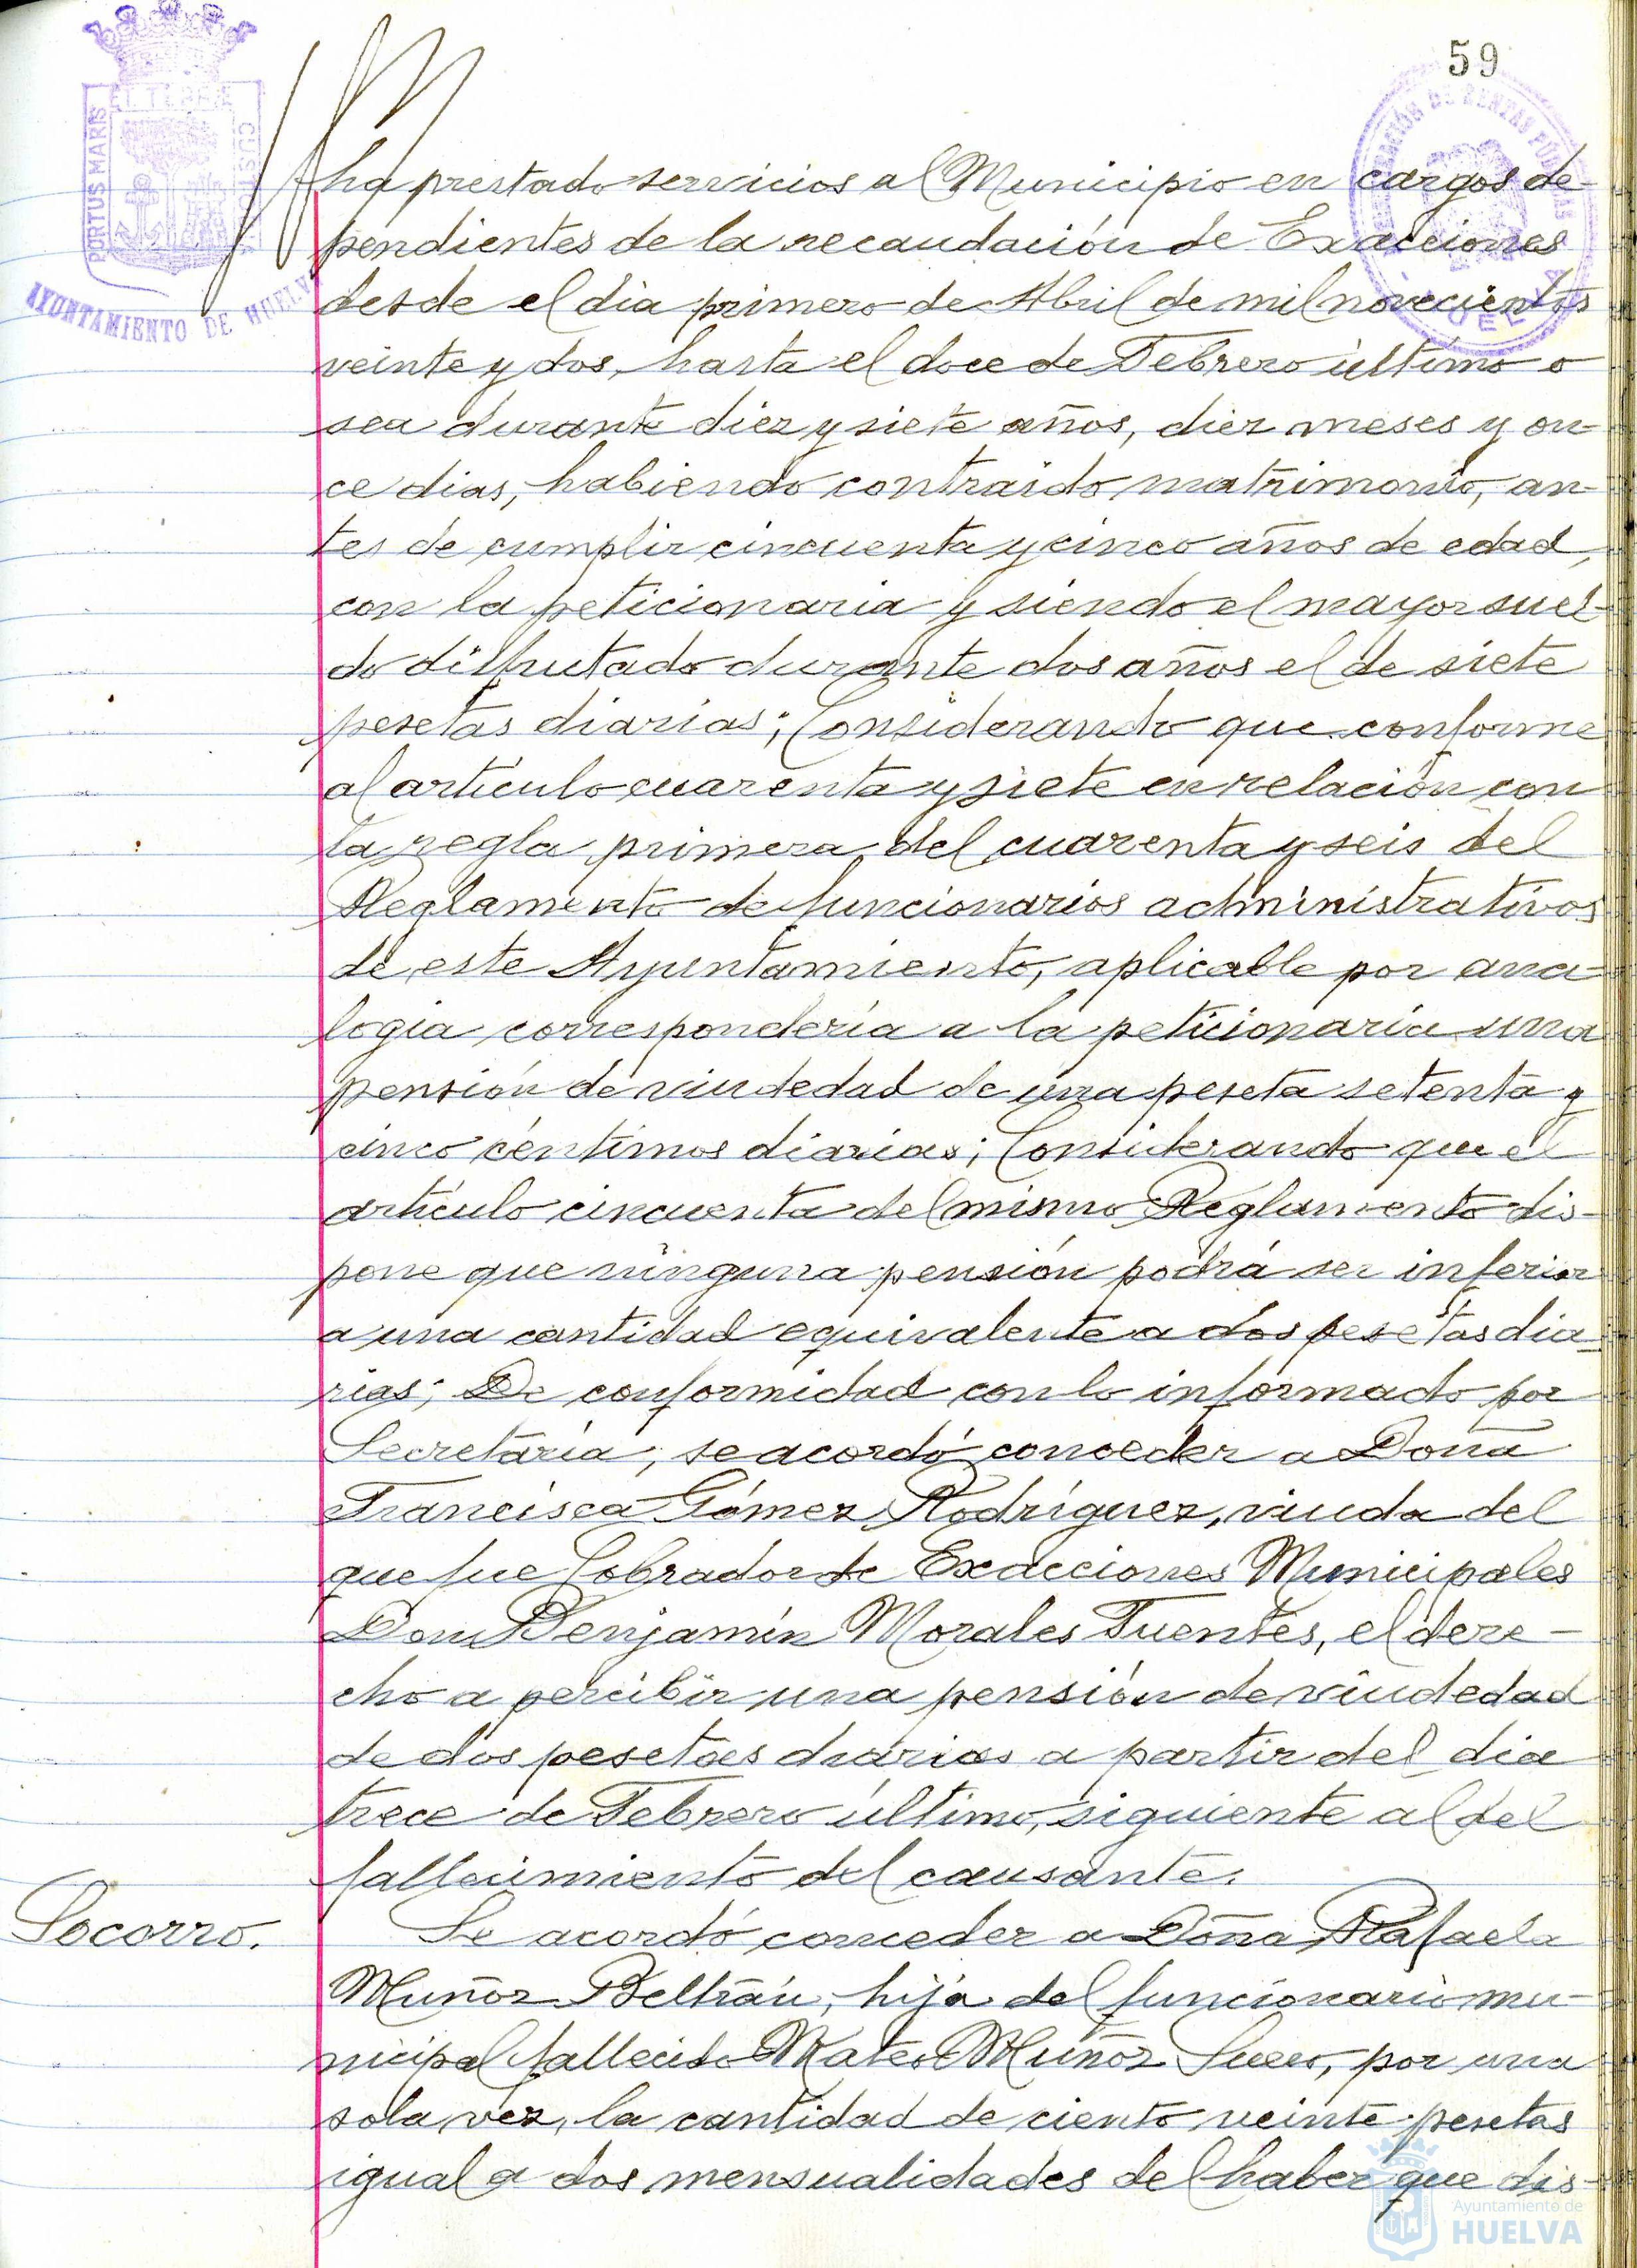 59
EL TERRÆ
PORTUS MARIS
AYUNTAMIENTO DE HUELVA
DE RENTAS PÚBLICAS
HUELVA
ha prestado servicios al Municipio en cargos de-
pendientes de la recaudación de Exacciones
desde el dia primero de Abril de mil novecientos
veinte y dos, hasta el doce de Febrero último o
sea durante diez y siete años, diez meses y on-
ce dias, habiendo contraido matrimonio, an-
tes de cumplir cincuenta y cinco años de edad,
con la peticionaria y siendo el mayor suel-
do disfrutado durante dos años el de siete
pesetas diarias; Considerando que conforme
al artículo cuarenta y siete en relación con
la regla primera del cuarenta y seis del
Reglamento de funcionarios administrativos
de este Ayuntamiento, aplicable por ana-
logía correspondería a la peticionaria una
pensión de viudedad de una peseta setenta y
cinco céntimos diarias; Considerando que el
artículo cincuenta del mismo Reglamento dis-
pone que ninguna pensión podrá ser inferior
a una cantidad equivalente a dos pesetas dia-
rias; De conformidad con lo informado por
Secretaría, se acordó conceder a Doña
Francisca Gómez Rodríguez, viuda del
que fue Cobrador de Exacciones Municipales
Don Benjamín Morales Fuentes, el dere-
cho a percibir una pensión de viudedad
de dos pesetas diarias a partir del dia
trece de Febrero último, siguiente al del
fallecimiento del causante.
Socorro.
Se acordó conceder a Doña Rafaela
Muñoz Beltrán, hija del funcionario mu-
nicipal fallecido Mateo Muñoz por una
sola vez, la cantidad de ciento veinte pesetas
igual a dos mensualidades del haber que dis-
Ayuntamiento de
HUELVA